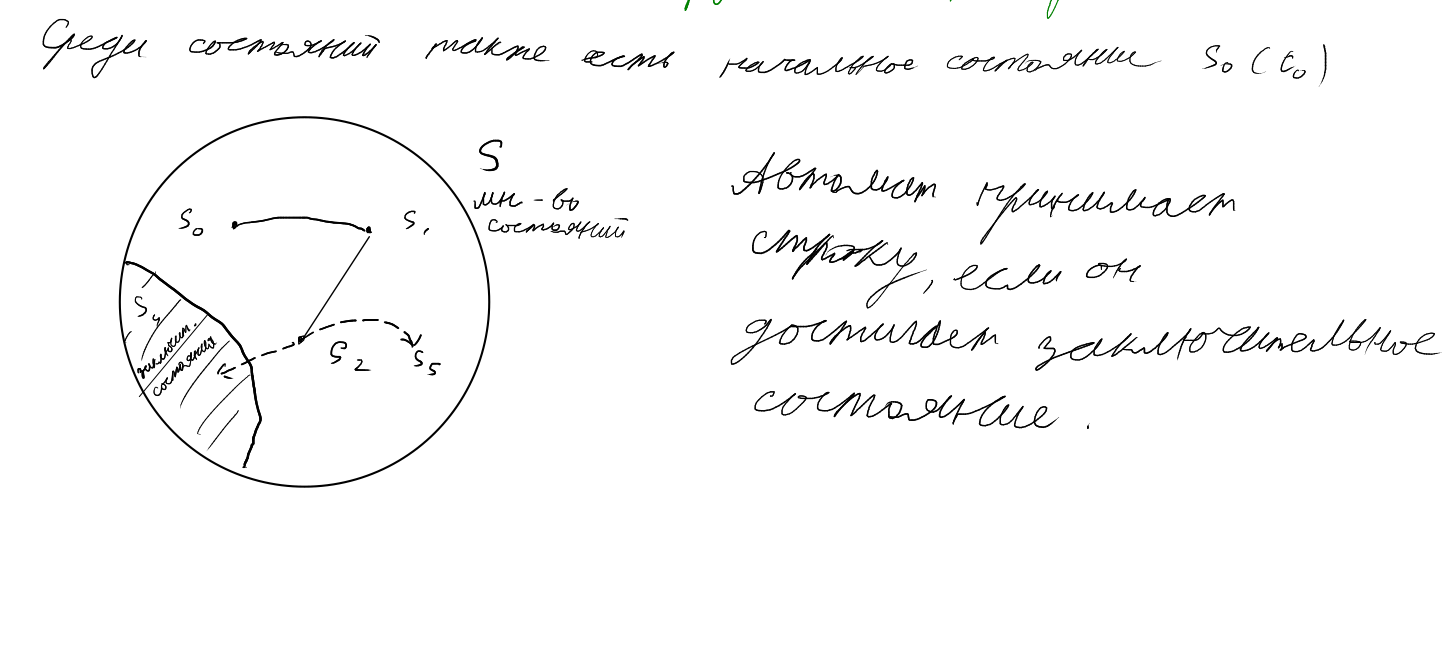 Среди состояний также есть начальное состояние S₀ (t₀)
S
мн-во
состояний
S₀
S₁
S₄
заключит.
состояния
S₂
S₅
Автомат принимает
строку, если он
достигает заключительное
состояние.